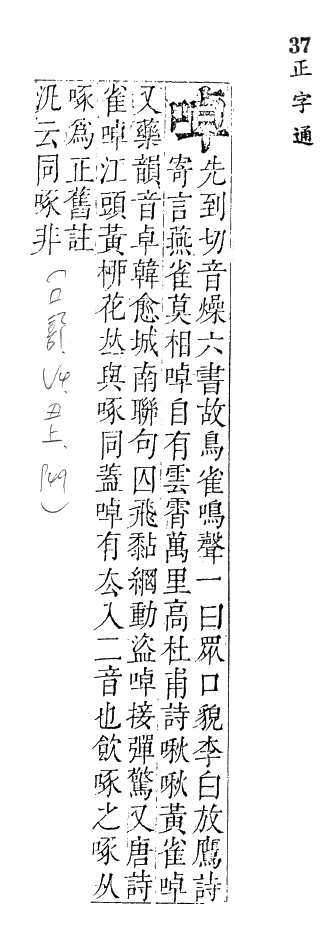 37 正字通
啅
先到切音燥六書故鳥雀鳴聲一曰眾口貌李白放鷹詩
寄言燕雀莫相啅自有雲霄萬里高杜甫詩啾啾黃雀啅
又藥韻音卓韓愈城南聯句囚飛黏網動盜啅接彈驚又唐詩
雀啅江頭黃栁花丛與啄同蓋啅有厺入二音也飲啄之啄从
啄爲正舊註
汎云同啄非
(口部、V4、丑上、P49)